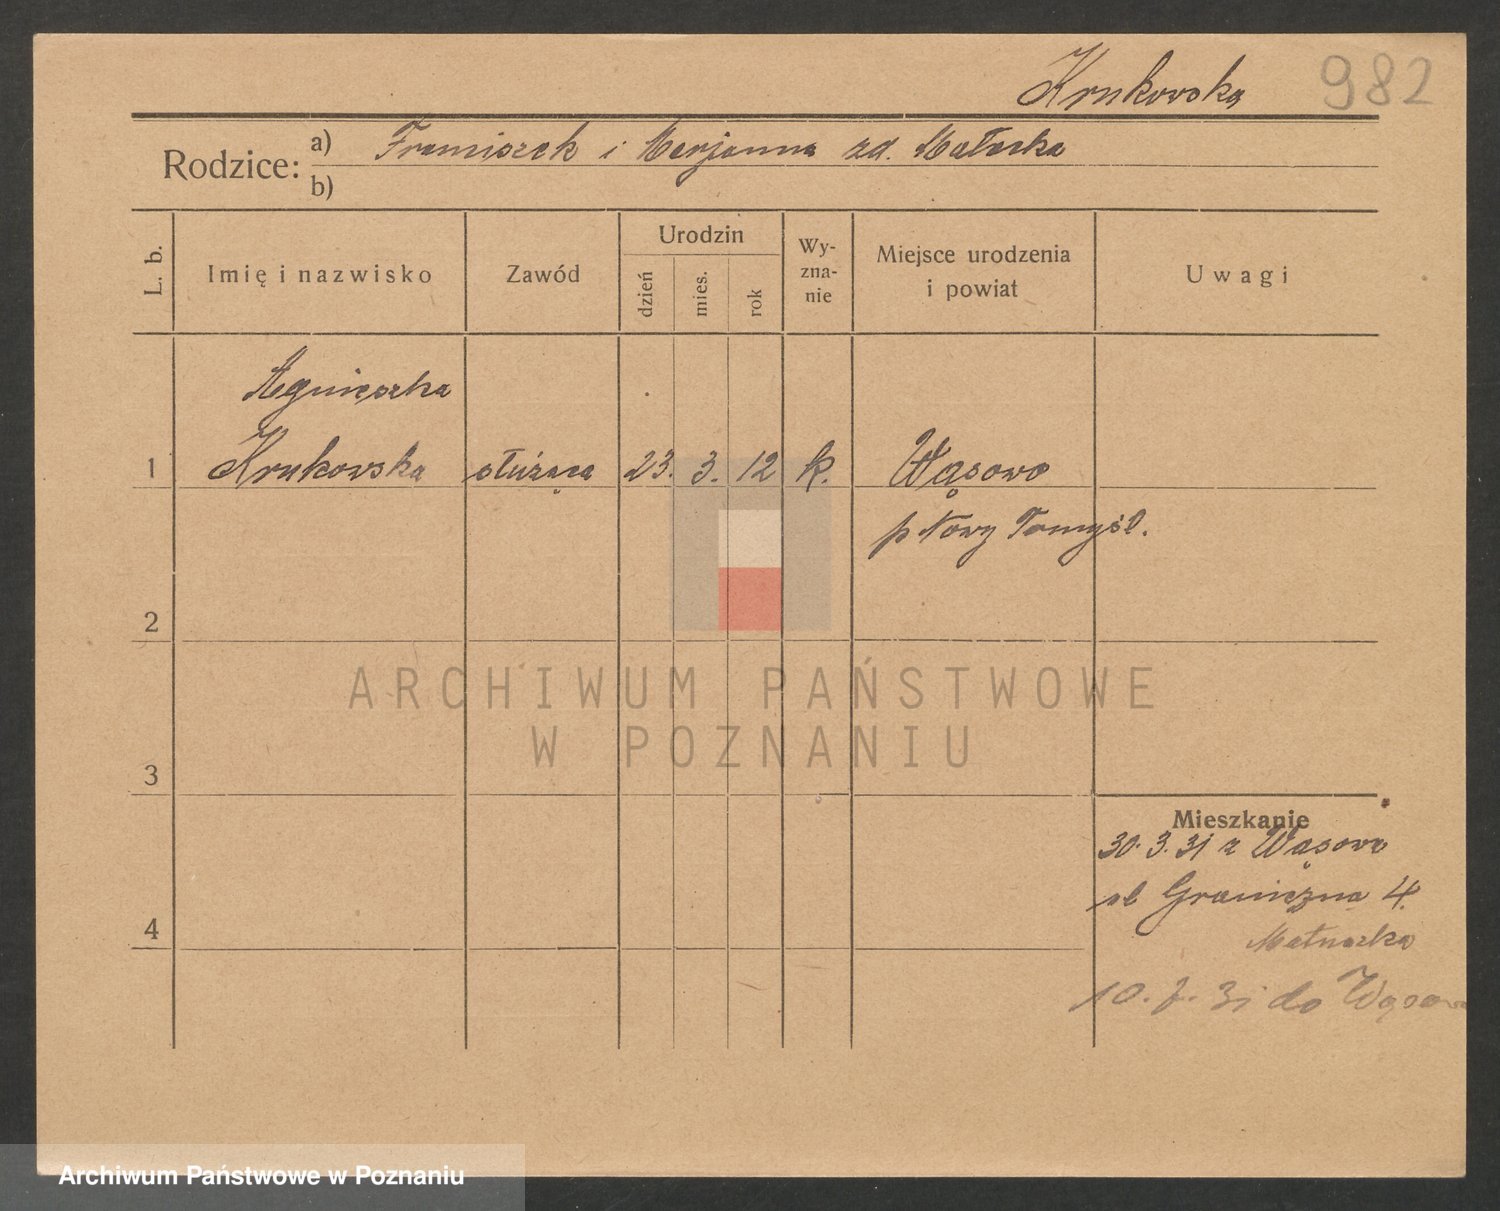 Krukowska 982
Rodzice: a) Franciszek i Marjanna zd.
b)
L. b.
Imię i nazwisko
Zawód
Urodzin
dzień
mies.
rok
Wy-
zna-
nie
Miejsce urodzenia
i powiat
Uwagi
Agnieszka
1 Krukowska służąca 23. 3. 12 k. Wąsowo
p Nowy Tomyśl.
2
ARCHIWUM PAŃSTWOWE
W POZNANIU
3
Mieszkanie
30. 3. 31 z Wąsowo
ul Graniczna 4.
4
10. 7. 31 do Wąsowo
Archiwum Państwowe w Poznaniu